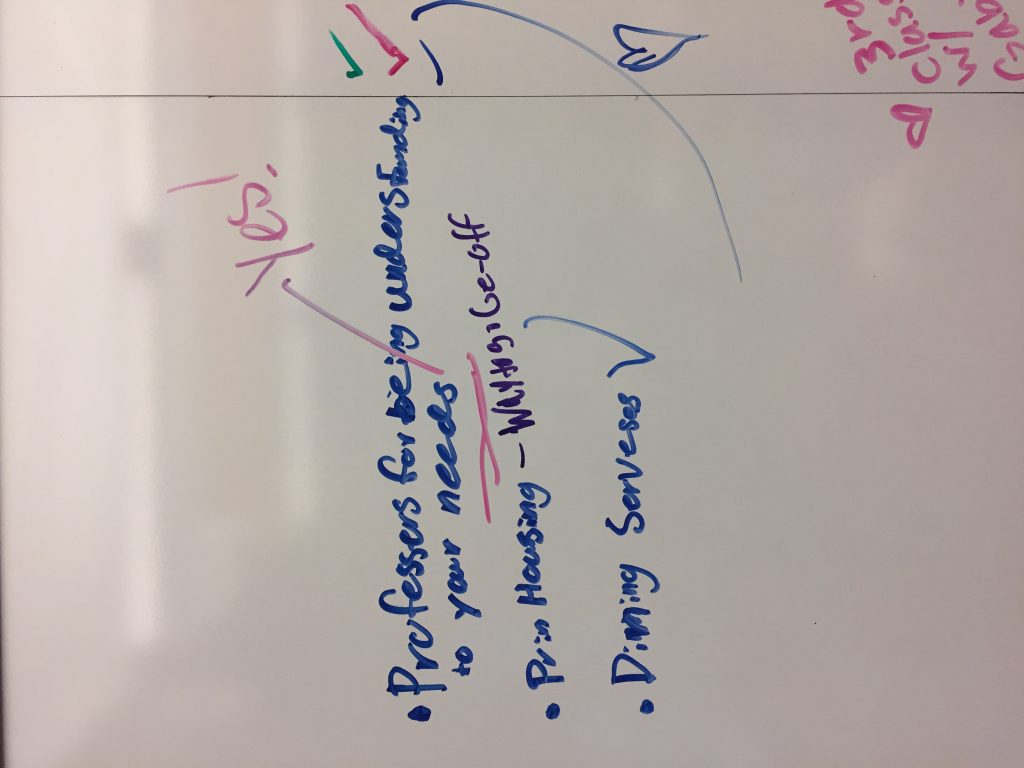 Yes!
• Professers for being understanding
to your needs
• Prin Housing - Ge-off
• Dinning Serveses
3rd
Clas
w/